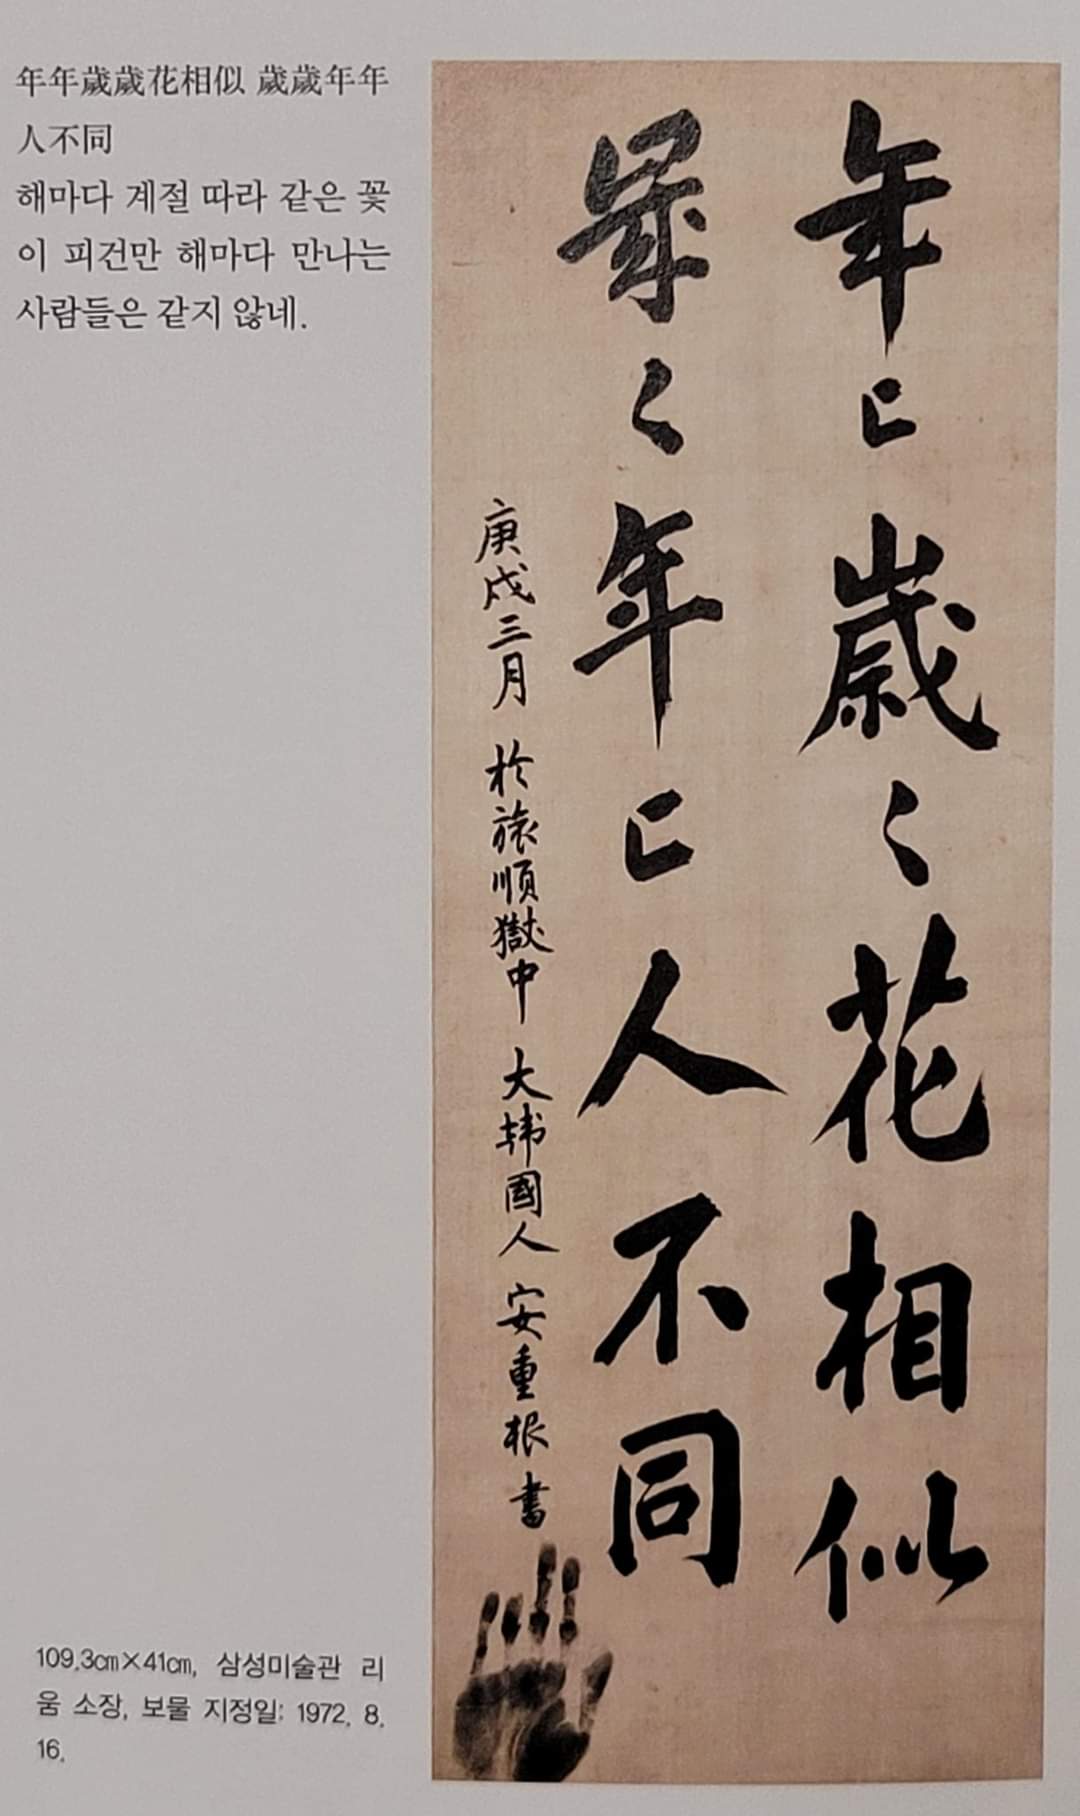 年年歲歲花相似 歲歲年年
人不同
해마다 계절 따라 같은 꽃
이 피건만 해마다 만나는
사람들은 같지 않네.
年〻歲〻花相似
歲〻年〻人不同
庚戌三月 於旅順獄中 大韓國人 安重根 書
109.3㎝×41㎝, 삼성미술관 리
움 소장, 보물 지정일: 1972. 8.
16.